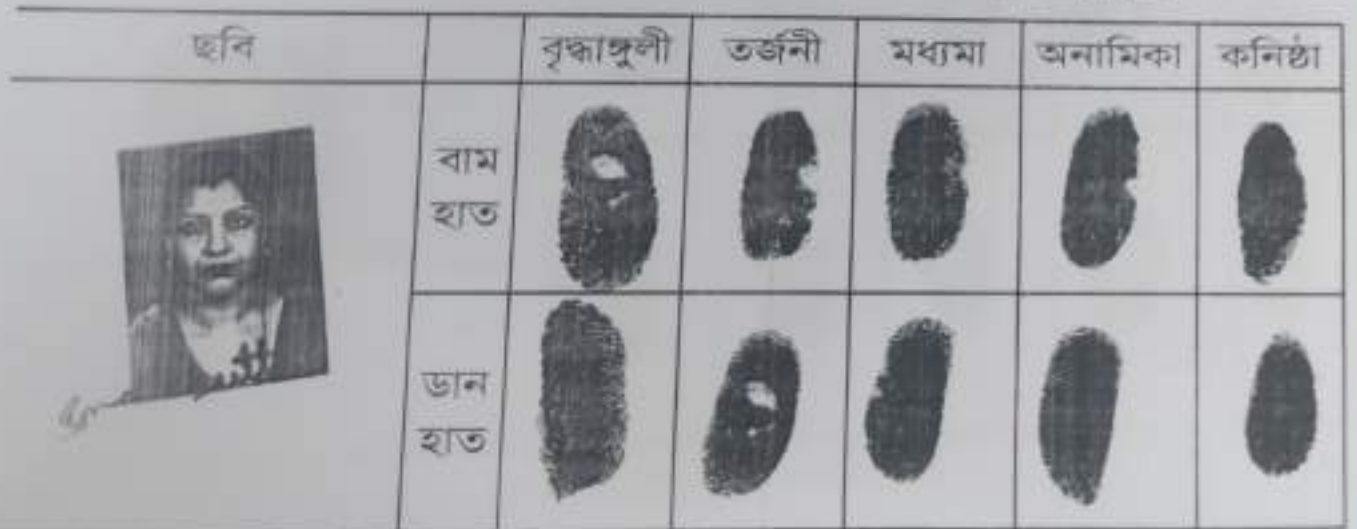 ছবি বৃদ্ধাঙ্গুলী তর্জনী মধ্যমা অনামিকা কনিষ্ঠা
বাম
হাত
ডান
হাত